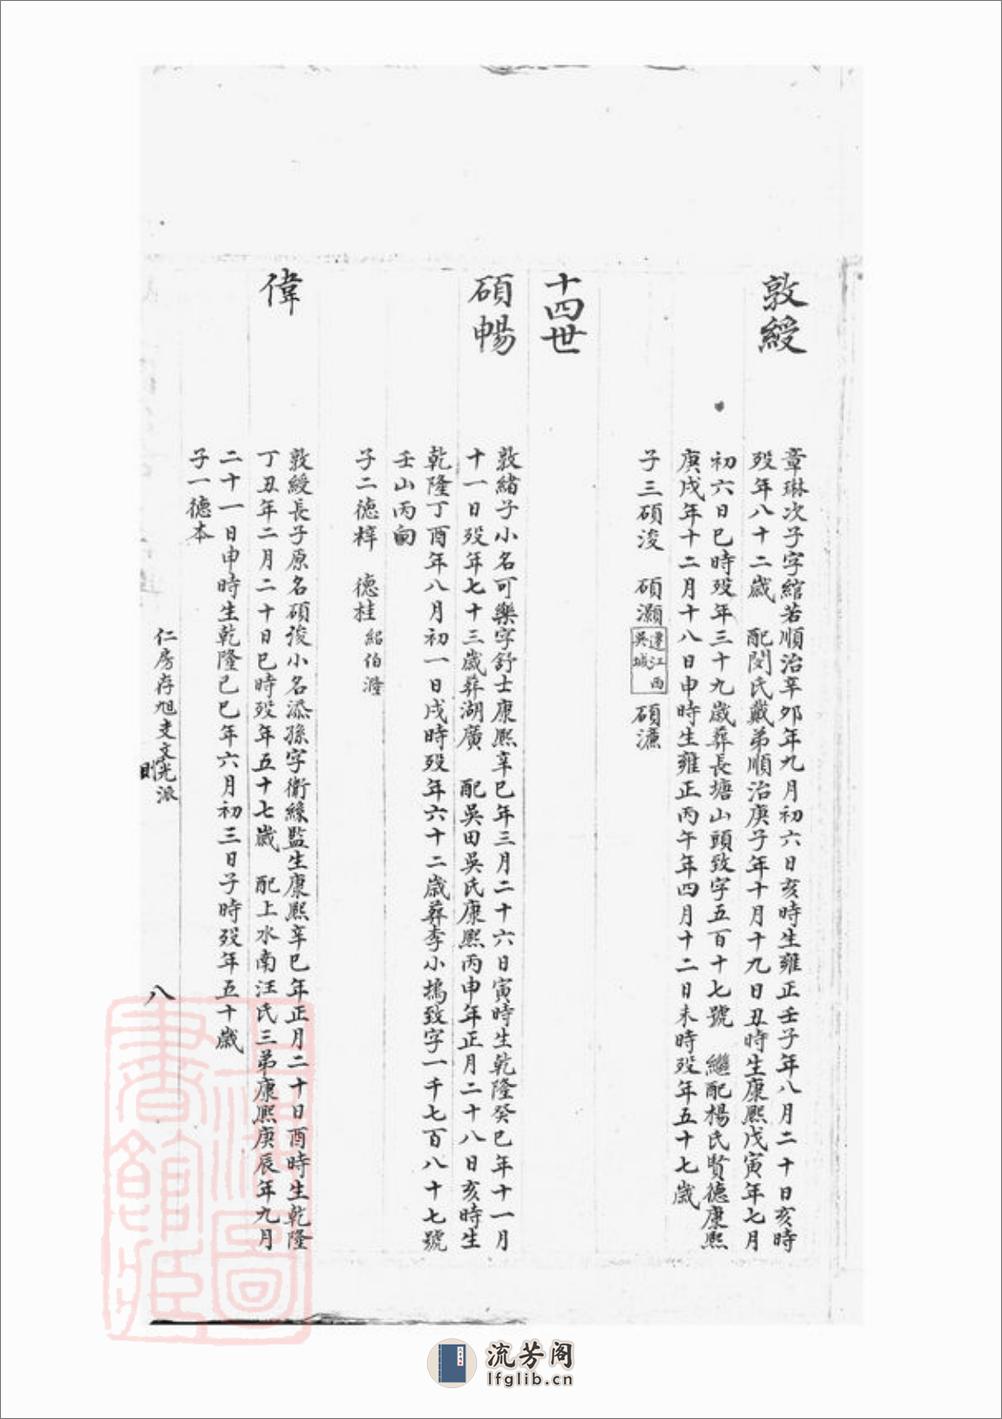 敦綬
章琳次子字綰若順治辛卯年九月初六日亥時生雍正壬子年八月二十日亥時
歿年八十二歲　配閔氏戴弟順治庚子年十月十九日丑時生康熙戊寅年七月
初六日巳時歿年三十九歲葬長塘山頭致字五百十七號　繼配楊氏賢德康熙
庚戌年十二月十八日申時生雍正丙午年四月十二日未時歿年五十七歲
子三碩浚　碩灝遷江西吳城　碩漉
十四世
碩暢
敦緒子小名可樂字舒士康熙辛巳年三月二十六日寅時生乾隆癸巳年十一月
十一日歿年七十三歲葬湖廣　配吳田吳氏康熙丙申年正月二十八日亥時生
乾隆丁酉年八月初一日戌時歿年六十二歲葬李小塢致字一千七百八十七號
壬山丙向
子二德梓　德桂紹伯
偉
敦綬長子原名碩浚小名添孫字衛緣監生康熙辛巳年正月二十日酉時生乾隆
丁丑年二月二十日巳時歿年五十七歲　配上水南汪氏三弟康熙庚辰年九月
二十一日申時生乾隆己巳年六月初三日子時歿年五十歲
子一德本
仁房存旭支文光派
八
流芳阁
lfglib.cn